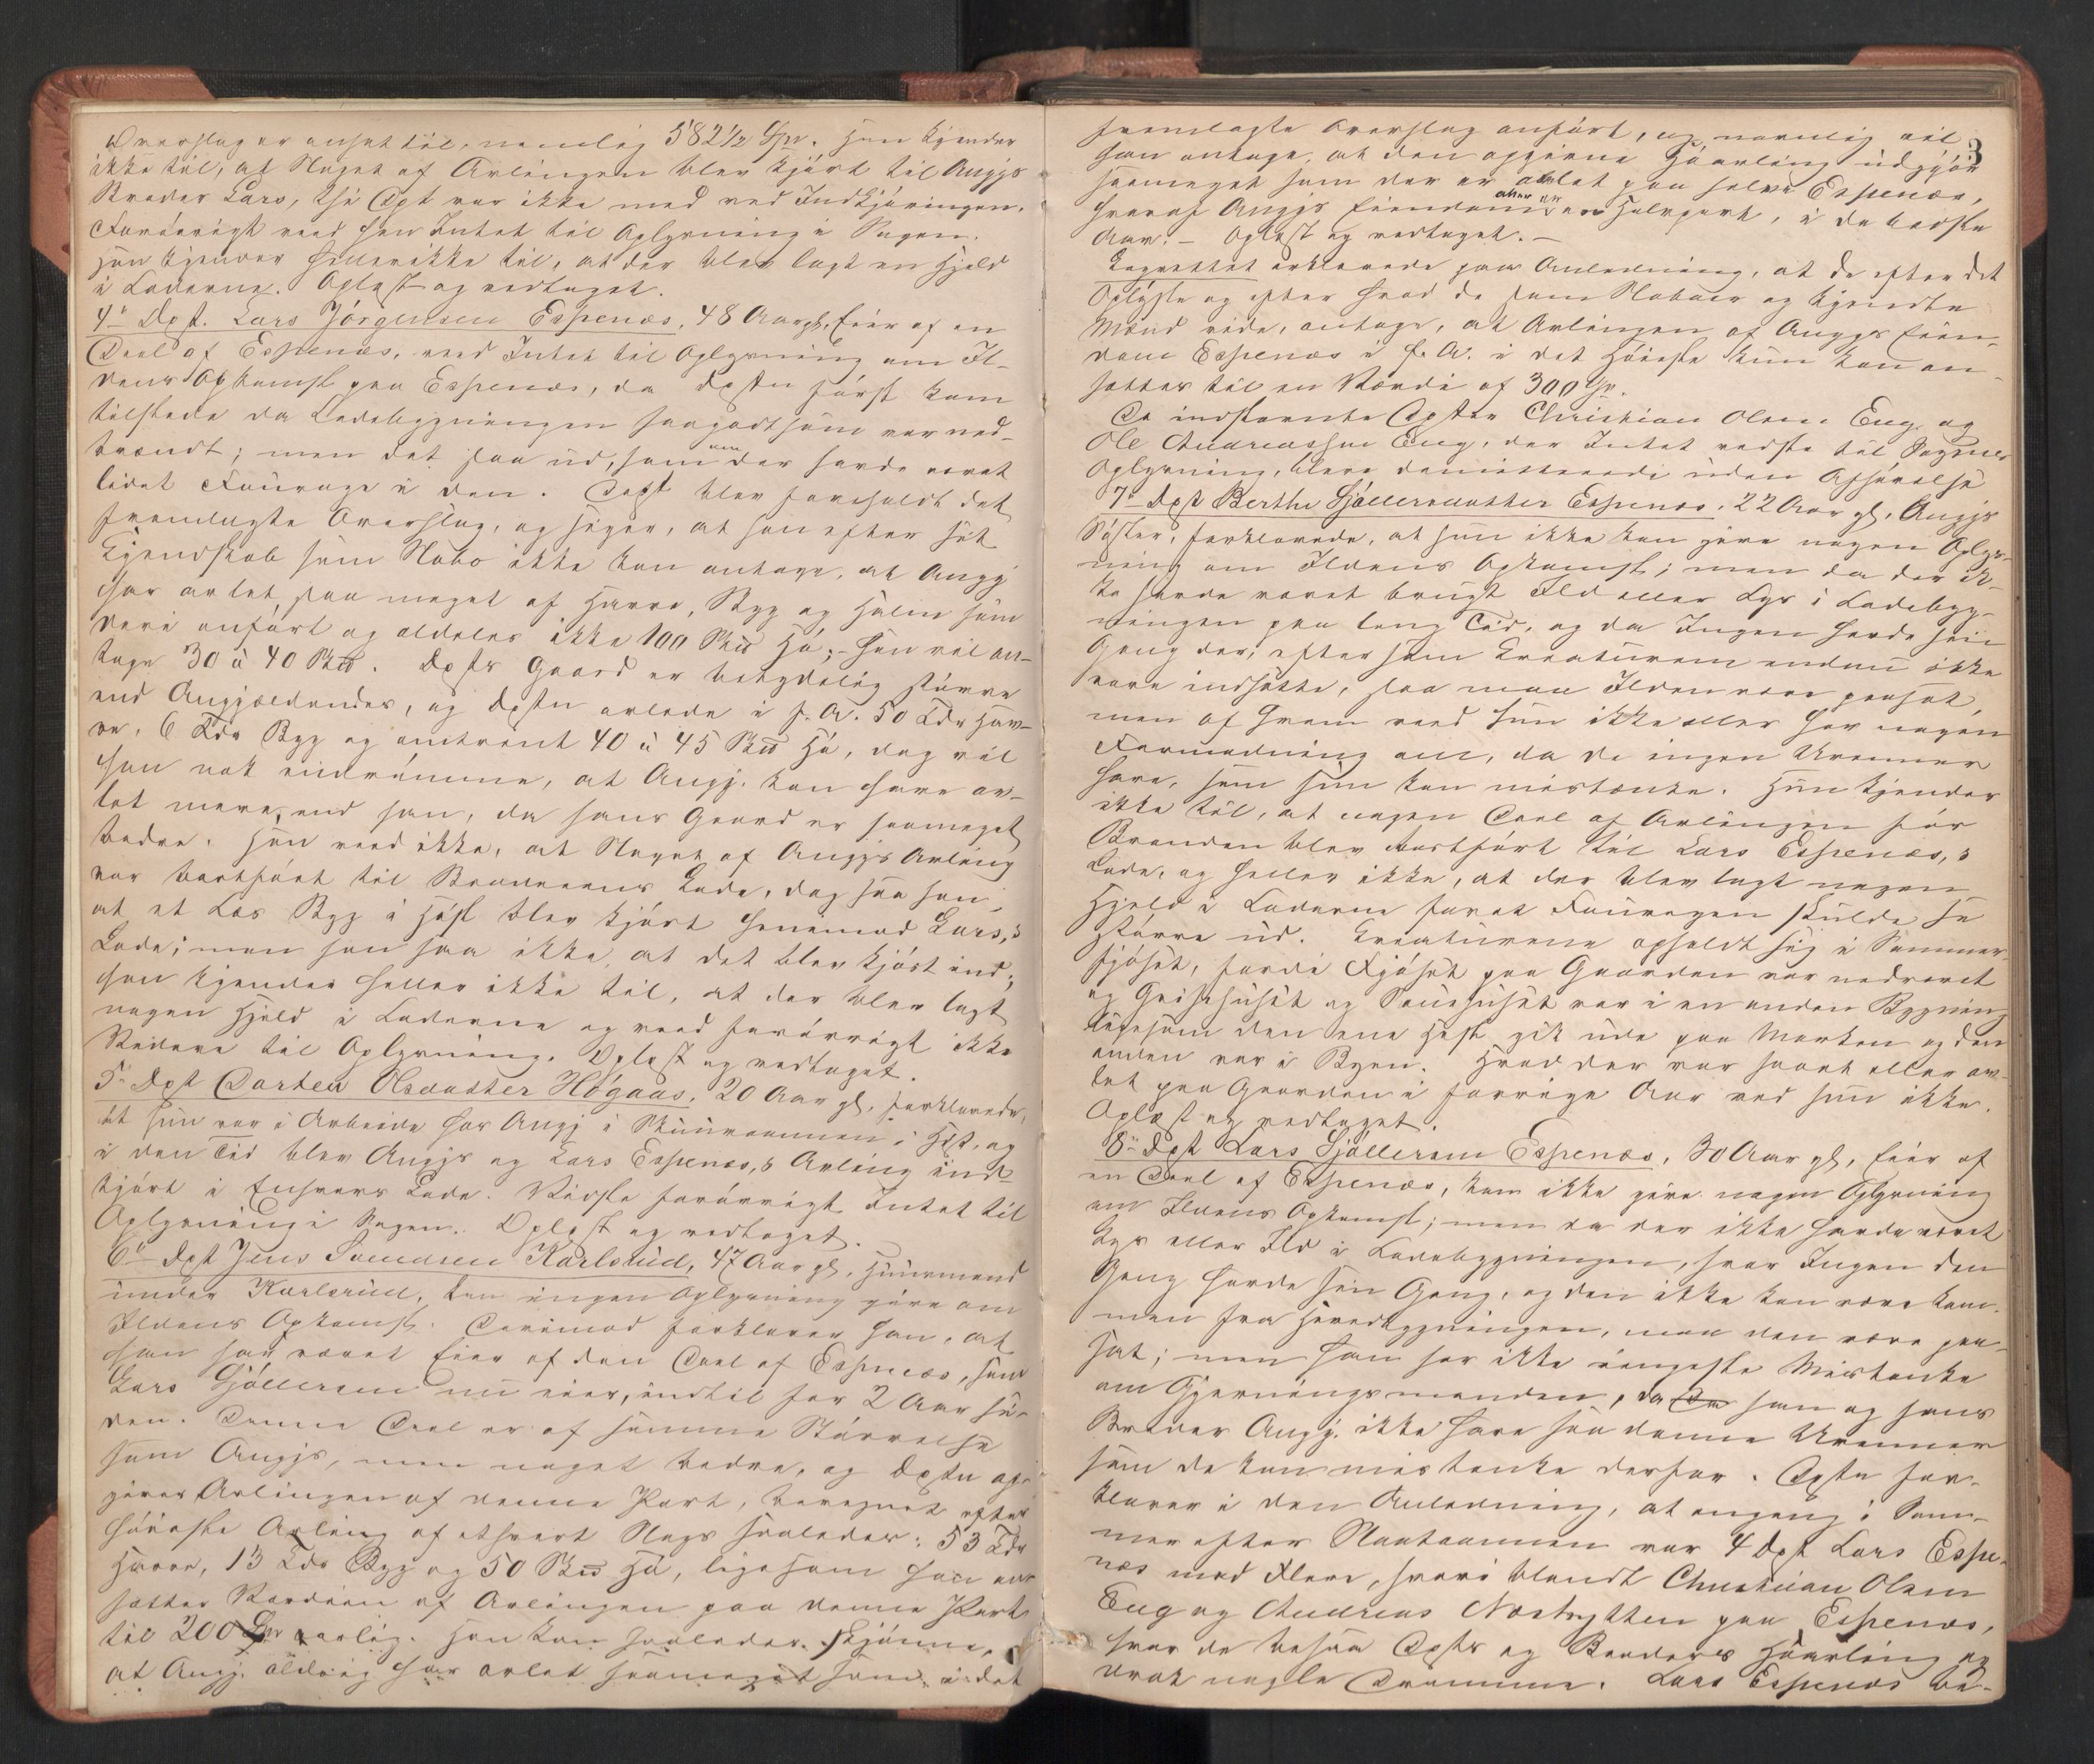 Overslag er ansat til, nemlig 582 1/2 Spd. Hun kjender
ikke til, at Noget af Avlingen blev kjørt til Angjs
Broder Lars, thi Dpt var ikke med ved Indkjøringen.
Forøvrigt veed hun Intet til Oplysning i Sagen.
Hun kjender heller ikke til, at der blev lagt en Hjeld
i Laderne. Oplæst og vedtaget.
4de Dpt. Lars Jørgensen Espenæs, 48 Aar gl, Eier af en
Deel af Espenæs, veed Intet til Oplysning om Il-
dens Opkomst paa Espenæs, da Dptn først kom
tilstede da Ladebygningen saagodtsom var ned-
brændt; men det saa ud, som om der havde været
lidet Fourage i den. Dept blev foreholdt det
fremlagte Overslag, og siger, at han efter sit
Kjendskab som Nabo ikke kan antage, at Angj
har avlet saa meget af Havre, Byg og Halm som
deri anført og aldeles ikke 100 Skd Hø; - han vil an-
tage 30 à 40 Skd. Dpts Gaard er betydelig større
end Angjældendes, og Dptn avlede i f. A. 50 Tdr Hav-
re, 6 Tdr Byg og omtrent 40 à 45 Skd Hø, dog vil
han nok indrømme, at Angj. kan have av-
let mere, end han, da hans Gaard er saameget
bedre. Han veed ikke, at Noget af Angjs Avling
var bortført til Broderens Lade, dog saa han,
at et Læs Byg i Høst blev kjørt henimod Lars,s
Lade; men han saa ikke, at det blev kjørt ind;
han kjender heller ikke til, at der blev lagt
nogen Hjeld i Laderne og veed forøvrigt ikke
Videre til Oplysning. Oplæst og vedtaget.
5te Dpt Dorthea Olsdatter Høgaas, 20 Aar gl, forklarede,
at hun var i Arbeide hos Angj i Skuuraannen i Høst, og
i den Tid blev Angjs og Lars Espenæs,s Avling ind-
kjørt i Enhvers Lade. Vidste forøvrigt Intet til
Oplysning i Sagen. Oplæst og vedtaget.
6te Dpt Jens Svendsen Karlsrud, 47 Aar gl, Huusmand
under Karlsrud, kan ingen Oplysning give om
Ildens Opkomst. Derimod forklarer han, at
han har været Eier af den Deel af Espenæs, som
Lars Gjøllersen nu eier, indtil for 2 Aar si-
den. Denne Deel er af samme Størrelse
som Angjs, men noget bedre, og Dptn op-
giver Avlingen af denne Part, beregnet efter
høieste Avling af ethvert Slags saaledes: 53 Tdr
Havre, 13 Tdr Byg og 50 Skd Hø, ligesom han an-
sætter Værdien af Avlingen paa denne Part
til 200 Spd aarlig. Han kan saaledes skjønne,
at Angj. aldrig har avlet saameget som i det
3
fremlagte Overslag anført, og navnlig vil
han antage, at den opgivne Høavling udgjør
saameget som der er avlet paa hele Espenæs,
hvoraf Angjs Eiendom alene er en Halvpart, i de bedste
Aar. - Oplæst og vedtaget. -
Lagrettet erklærede paa Anledning, at de efter det
Oplyste og efter hvad de som Naboer og kjendte
Mænd vide, antage, at Avlingen af Angjs Eien-
dom Espenæs i f. A. i det Høieste kun kan an-
sættes til en Værdi af 300 Spd.
De indstevnte Dptn Christian Olsen Eng og
Ole Andreassen Eng, der Intet vidste til Sagens
Oplysning, bleve demitterede uden Afhørelse
7de Dpt Berthe Gjøllersdatter Espenæs, 22 Aar gl, Angjs
Søster, forklarede, at hun ikke kan give nogen Oplys-
ning om Ildens Opkomst; men da der ik-
ke havde været brugt Ild eller Lys i Ladebyg-
ningen paa lang Tid, og da Ingen havde sin
Gang der, eftersom Kreaturene endnu ikke
vare indsatte, saa maa Ilden være paasat,
men af hvem veed hun ikke eller har nogen
Formodning om, da de ingen Uvenner
have, som hun kan mistænke. Hun kjender
ikke til, at nogen Deel af Avlingen før
Branden blev bortført til Lars Espenæs,s
Lade, og heller ikke, at der blev lagt nogen
Hjeld i Laderne forat Fouragen skulde se
større ud. Kreaturene opholdt sig i Sommer-
fjøset, fordi Fjøset paa Gaarden var nedrevet
og Grisehuset og Sauehuset var i en anden Bygning
ligesom den ene Hest gik ude paa Marken og den
anden var i Byen. Hvad der var saaet eller av-
let paa Gaarden i forrige Aar ved hun ikke.
Oplæst og vedtaget.
8de Dpt Lars Gjøllersen Espenæs, 30 Aar gl, Eier af
en Deel af Espenæs, kan ikke give nogen Oplysning
om Ildens Opkomst; men da der ikke havde været
Lys eller Ild i Ladebygningen, hvor Ingen den
Gang havde sin Gang, og den ikke kan være kom-
men fra Hovedbygningen, maa den være paa-
sat; men han har ikke ringeste Mistanke
om Gjerningsmanden, da han og hans
Broder Angj. ikke have saadanne Uvenner
som de kan mistænke derfor. Dptn for-
klarer i den Anledning, at engang i Som-
mer efter Slaataannen var 4 Dpt Lars Espe-
næs med Flere, hvoriblandt Christian Olsen
Eng og Andreas Næshytten paa Espenæs,
hvor de besaa Dpts og Broders Høavling og
drak nogle Dramme. Lars Espenæs be-